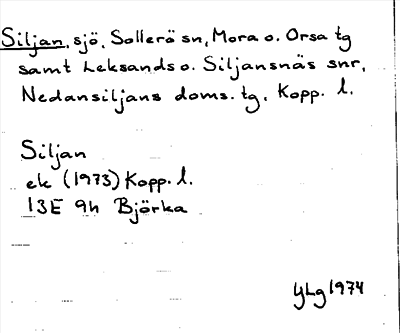 Siljan, sjö, Sollerö sn, Mora o. Orsa tg
samt Leksands o. Siljansnäs snr,
Nedansiljans doms. tg, Kopp. l.
Siljan
ek (1973) Kopp. l.
13E 9h Björka
YLg 1974